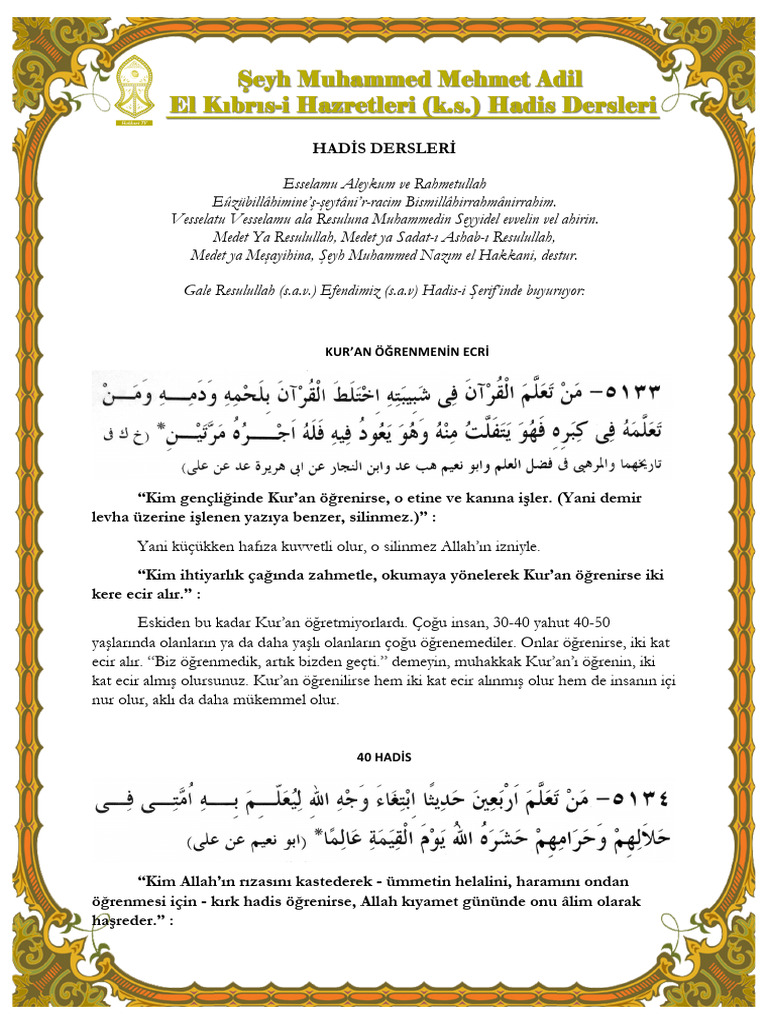 Şeyh Muhammed Mehmet Adil
El Kıbrıs-i Hazretleri (k.s.) Hadis Dersleri
Hakkani TV
HADİS DERSLERİ
Esselamu Aleykum ve Rahmetullah
Eûzübillâhimine’ş-şeytâni’r-racim Bismillâhirrahmânirrahim.
Vesselatu Vesselamu ala Resuluna Muhammedin Seyyidel evvelin vel ahirin.
Medet Ya Resulullah, Medet ya Sadat-ı Ashab-ı Resulullah,
Medet ya Meşayihina, Şeyh Muhammed Nazım el Hakkani, destur.
Gale Resulullah (s.a.v.) Efendimiz (s.a.v) Hadis-i Şerif’inde buyuruyor:
KUR’AN ÖĞRENMENİN ECRİ
٥١٣٣– مَنْ تَعَلَّمَ الْقُرْآنَ فِى شَبِيبَتِهِ اخْتَلَطَ الْقُرْآنَ بِلَحْمِهِ وَدَمِهِ وَمَنْ
تَعَلَّمَهُ فِى كِبَرِهِ فَهُوَ يَتَفَلَّتُ مِنْهُ وَهُوَ يَعُودُ فِيهِ فَلَهُ اَجْرُهُ مَرَّتَيْنِ* (خ ك فى
تاريخهما والمرهبى فى فضل العلم وابو نعيم هب عد وابن النجار عن ابى هريرة عد عن على)
“Kim gençliğinde Kur’an öğrenirse, o etine ve kanına işler. (Yani demir
levha üzerine işlenen yazıya benzer, silinmez.)” :
Yani küçükken hafıza kuvvetli olur, o silinmez Allah’ın izniyle.
“Kim ihtiyarlık çağında zahmetle, okumaya yönelerek Kur’an öğrenirse iki
kere ecir alır.” :
Eskiden bu kadar Kur’an öğretmiyorlardı. Çoğu insan, 30-40 yahut 40-50
yaşlarında olanların ya da daha yaşlı olanların çoğu öğrenemediler. Onlar öğrenirse, iki kat
ecir alır. “Biz öğrenmedik, artık bizden geçti.” demeyin, muhakkak Kur’an’ı öğrenin, iki
kat ecir almış olursunuz. Kur’an öğrenilirse hem iki kat ecir alınmış olur hem de insanın içi
nur olur, aklı da daha mükemmel olur.
40 HADİS
٥١٣٤– مَنْ تَعَلَّمَ اَرْبَعِينَ حَدِيثًا ابْتِغَاءَ وَجْهِ اللهِ لِيُعَلِّمَ بِهِ اُمَّتِى فِى
حَلاَلِهِمْ وَحَرَامِهِمْ حَشَرَهُ اللهُ يَوْمَ الْقِيمَةِ عَالِمًا* (ابو نعيم عن على)
“Kim Allah’ın rızasını kastederek - ümmetin helalini, haramını ondan
öğrenmesi için - kırk hadis öğrenirse, Allah kıyamet gününde onu âlim olarak
haşreder.” :